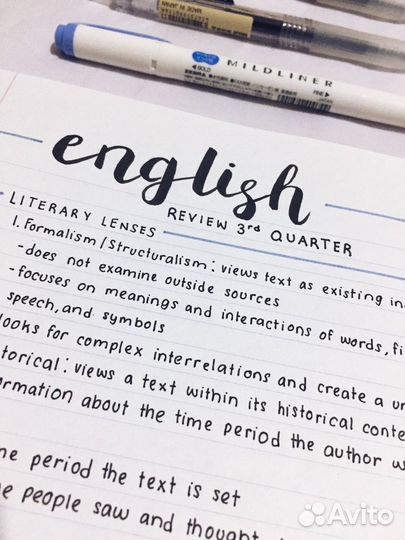 MADE IN JAPAN
MILDLINER
BOLD
FINE
JAPAN
english
REVIEW 3rd QUARTER
LITERARY LENSES
1. Formalism/Structuralism: views text as existing in
-does not examine outside sources
-focuses on meanings and interactions of words, fi
speech, and symbols
looks for complex interrelations and create a
torical: views a text within its historical conte
ormation about the time period the author w
me period the text is set
people saw and thought
Avito